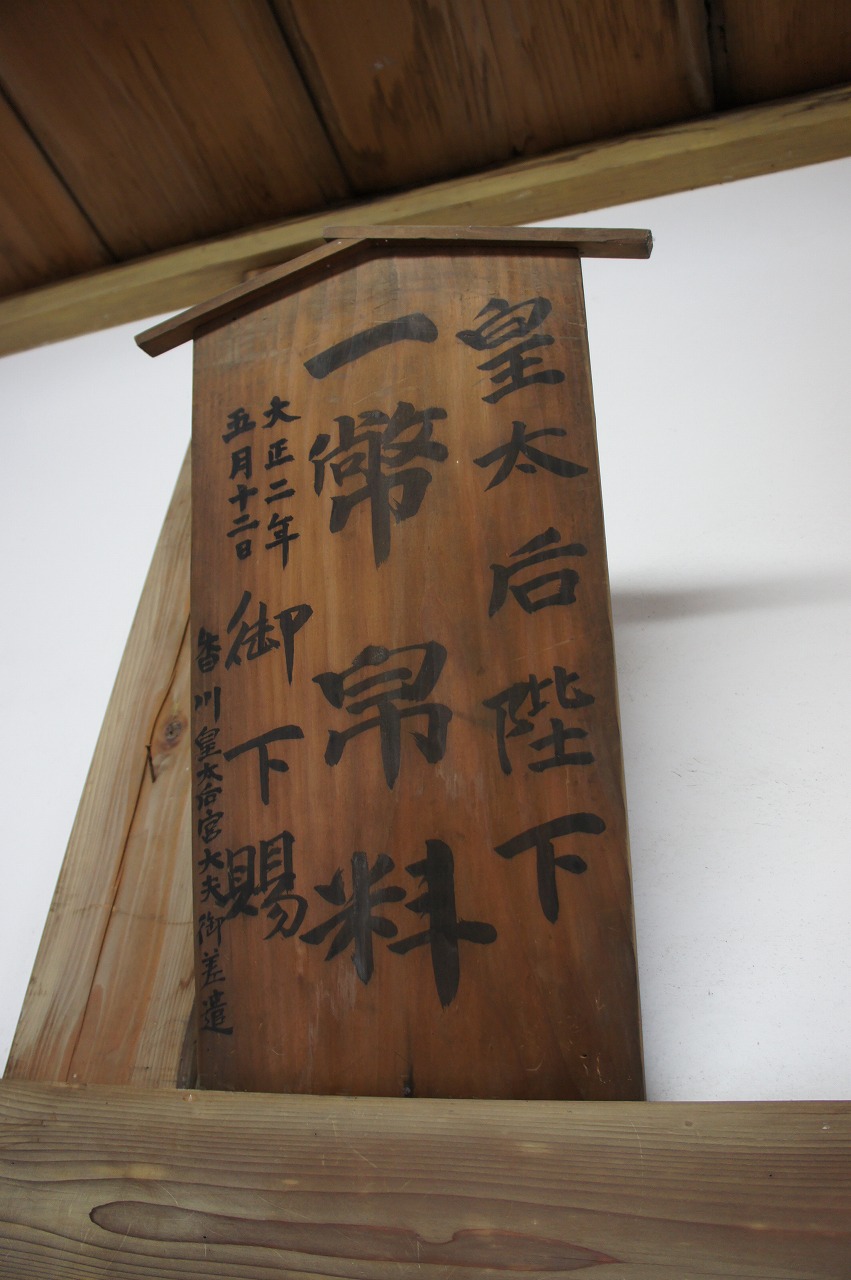 皇太后陛下
一幣帛料
大正二年
五月十二日
御下賜
香川皇太后宮大夫御差遣